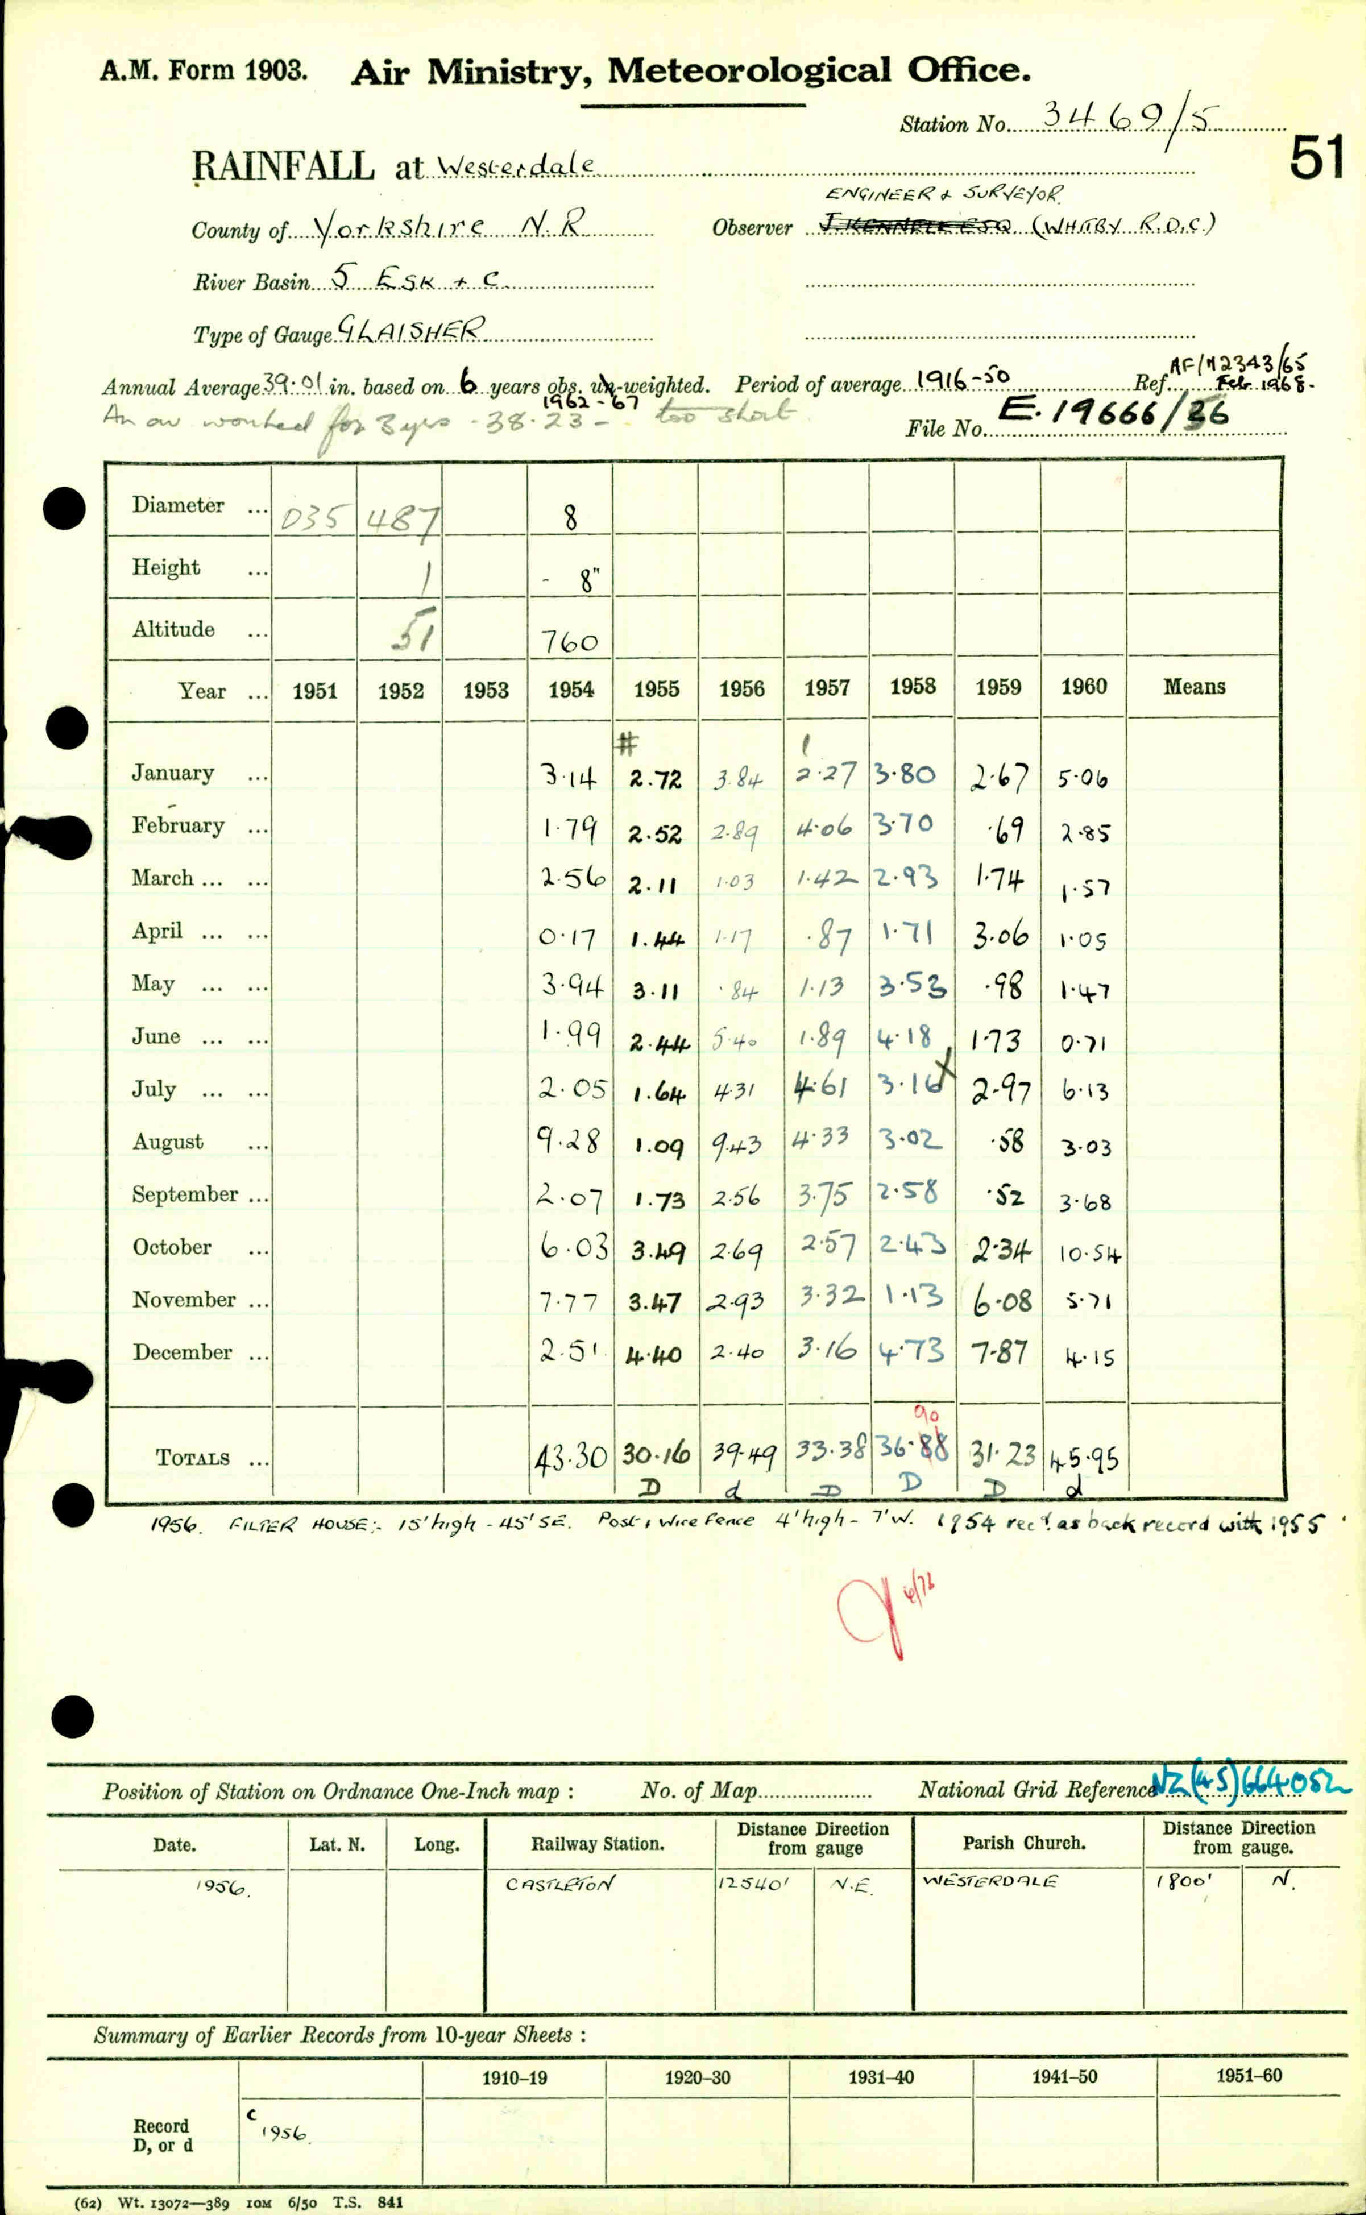 A.M. Form 1903. Air Ministry, Meteorological Office.
Station No. 3469/5
51
RAINFALL at Westerdale
ENGINEER & SURVEYOR
County of Yorkshire N.R Observer (WHITBY R.D.C.)
River Basin 5 ESK + C
Type of Gauge GLAISHER
AF/M2343/65
Annual Average 39.01 in. based on 6 years obs. un-weighted. Period of average 1916-50 Ref. Feb 1968.
1962-67
An av worked for 3 yrs - 38.23 - too short
File No. E.19666/56
Diameter ... 035 487 8
Height ... 1 - 8"
Altitude ... 51 760
Year ... 1951 1952 1953 1954 1955 1956 1957 1958 1959 1960 Means
# 1
January ... 3.14 2.72 3.84 2.27 3.80 2.67 5.06
February ... 1.79 2.52 2.89 4.06 3.70 .69 2.85
March ... ... 2.56 2.11 1.03 1.42 2.93 1.74 1.57
April ... ... 0.17 1.44 1.17 .87 1.71 3.06 1.05
May ... ... 3.94 3.11 .84 1.13 3.53 .98 1.47
June ... ... 1.99 2.44 5.40 1.89 4.18 1.73 0.71
July ... ... 2.05 1.64 4.31 4.61 3.16 X 2.97 6.13
August ... 9.28 1.09 9.43 4.33 3.02 .58 3.03
September ... 2.07 1.73 2.56 3.75 2.58 .52 3.68
October ... 6.03 3.49 2.69 2.57 2.43 2.34 10.54
November ... 7.77 3.47 2.93 3.32 1.13 6.08 5.71
December ... 2.51 4.40 2.40 3.16 4.73 7.87 4.15
90
TOTALS ... 43.30 30.16 39.49 33.38 36.88 31.23 45.95
D d D D D d
1956. FILTER HOUSE:- 15' high - 45' SE. Post & Wire Fence 4' high - 7' W. 1954 recd. as back record with 1955
Position of Station on Ordnance One-Inch map : No. of Map National Grid Reference NZ(45)664052
Date. Lat. N. Long. Railway Station. Distance Direction from gauge Parish Church. Distance Direction from gauge.
1956. CASTLETON 12540' N.E. WESTERDALE 1800' N.
Summary of Earlier Records from 10-year Sheets :
1910–19 1920–30 1931–40 1941–50 1951–60
Record D, or d C 1956
(62) Wt. 13072—389 IOM 6/50 T.S. 841